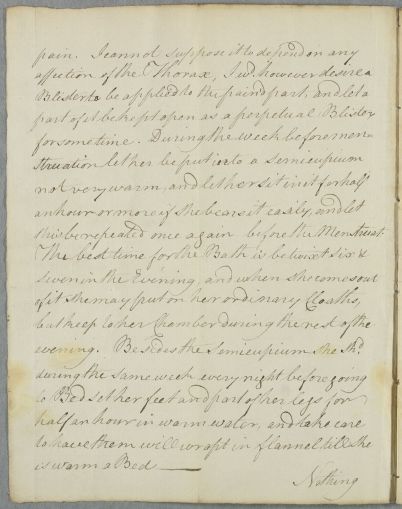 pain. I cannot suppose it to depend on any
affection of the Thorax, I wd. however desire a
Blister to be applied to the pain'd part, and let a
part of it be kept open as a perpetual Blister
for some time. During the week before men-
struation let her be put into a semicupium
not very warm, and let her sit in it for half
an hour or more if she bears it easily, and let
this be repeated once again before the Menstruat.
The best time for the Bath is betwixt six &
seven in the Evening, and when she comes out
of it she may put on her ordinary Cloaths,
but keep to her Chamber during the rest of the
evening. Besides the Semicupium she shd.
during the same week every night before going
to Bed set her feet and part of her legs for
half an hour in warm water, and take care
to have them well wrapt in flannel till she
is warm a Bed
Nothing